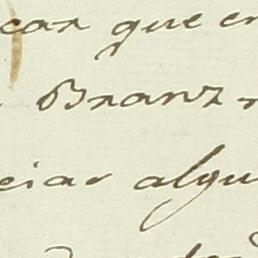 car que en
Branz
ciar algu